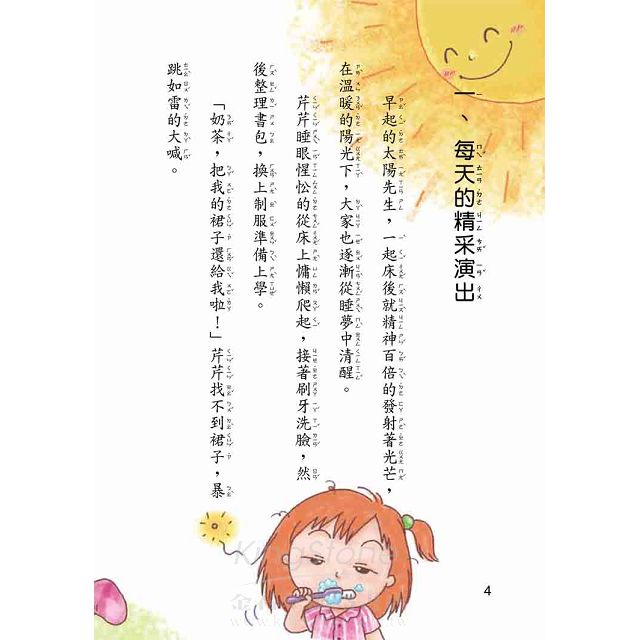 一、每天的精采演出
早起的太陽先生，一起床後就精神百倍的發射著光芒，
在溫暖的陽光下，大家也逐漸從睡夢中清醒。
芹芹睡眼惺忪的從床上慵懶爬起，接著刷牙洗臉，然
後整理書包，換上制服準備上學。
「奶茶，把我的裙子還給我啦！」芹芹找不到裙子，暴
跳如雷的大喊。
4
KingStone